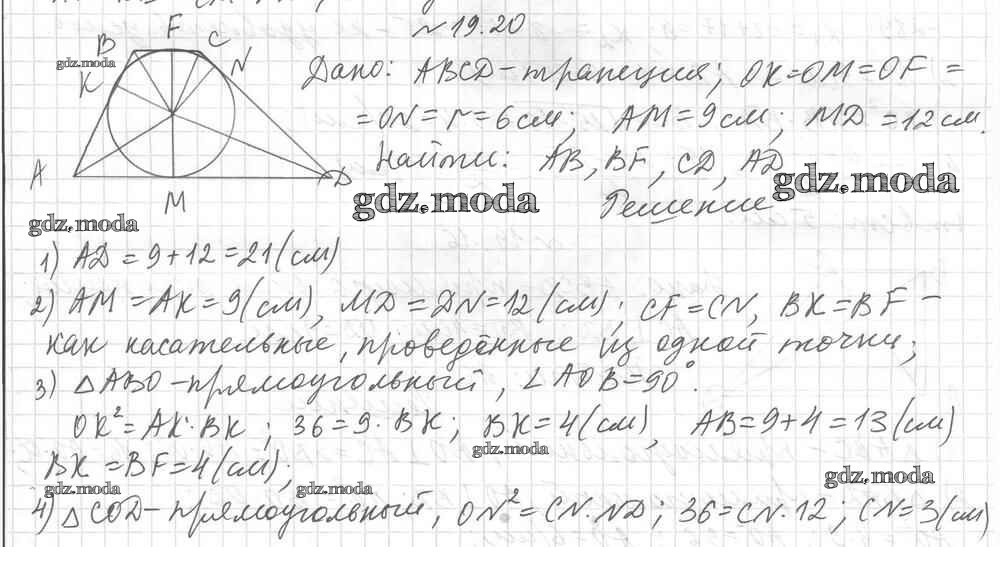 № 19.20
B F C
K N
A M D
Дано: ABCD – трапеция; OK=OM=OF =
= ON = r = 6 см; AM = 9 см; MD = 12 см.
Найти: AB, BF, CD, AD
Решение
1) AD = 9 + 12 = 21 (см)
2) AM = AK = 9 (см), MD = DN = 12 (см); CF = CN, BK = BF –
как касательные, проведённые из одной точки;
3) △ABO – прямоугольный, ∠AOB = 90°.
OK² = AK · BK ; 36 = 9 · BK ; BK = 4 (см), AB = 9 + 4 = 13 (см)
BK = BF = 4 (см);
4) △COD – прямоугольный, ON² = CN · ND ; 36 = CN · 12 ; CN = 3 (см)
gdz.moda
gdz.moda
gdz.moda
gdz.moda
gdz.moda
gdz.moda
gdz.moda
gdz.moda